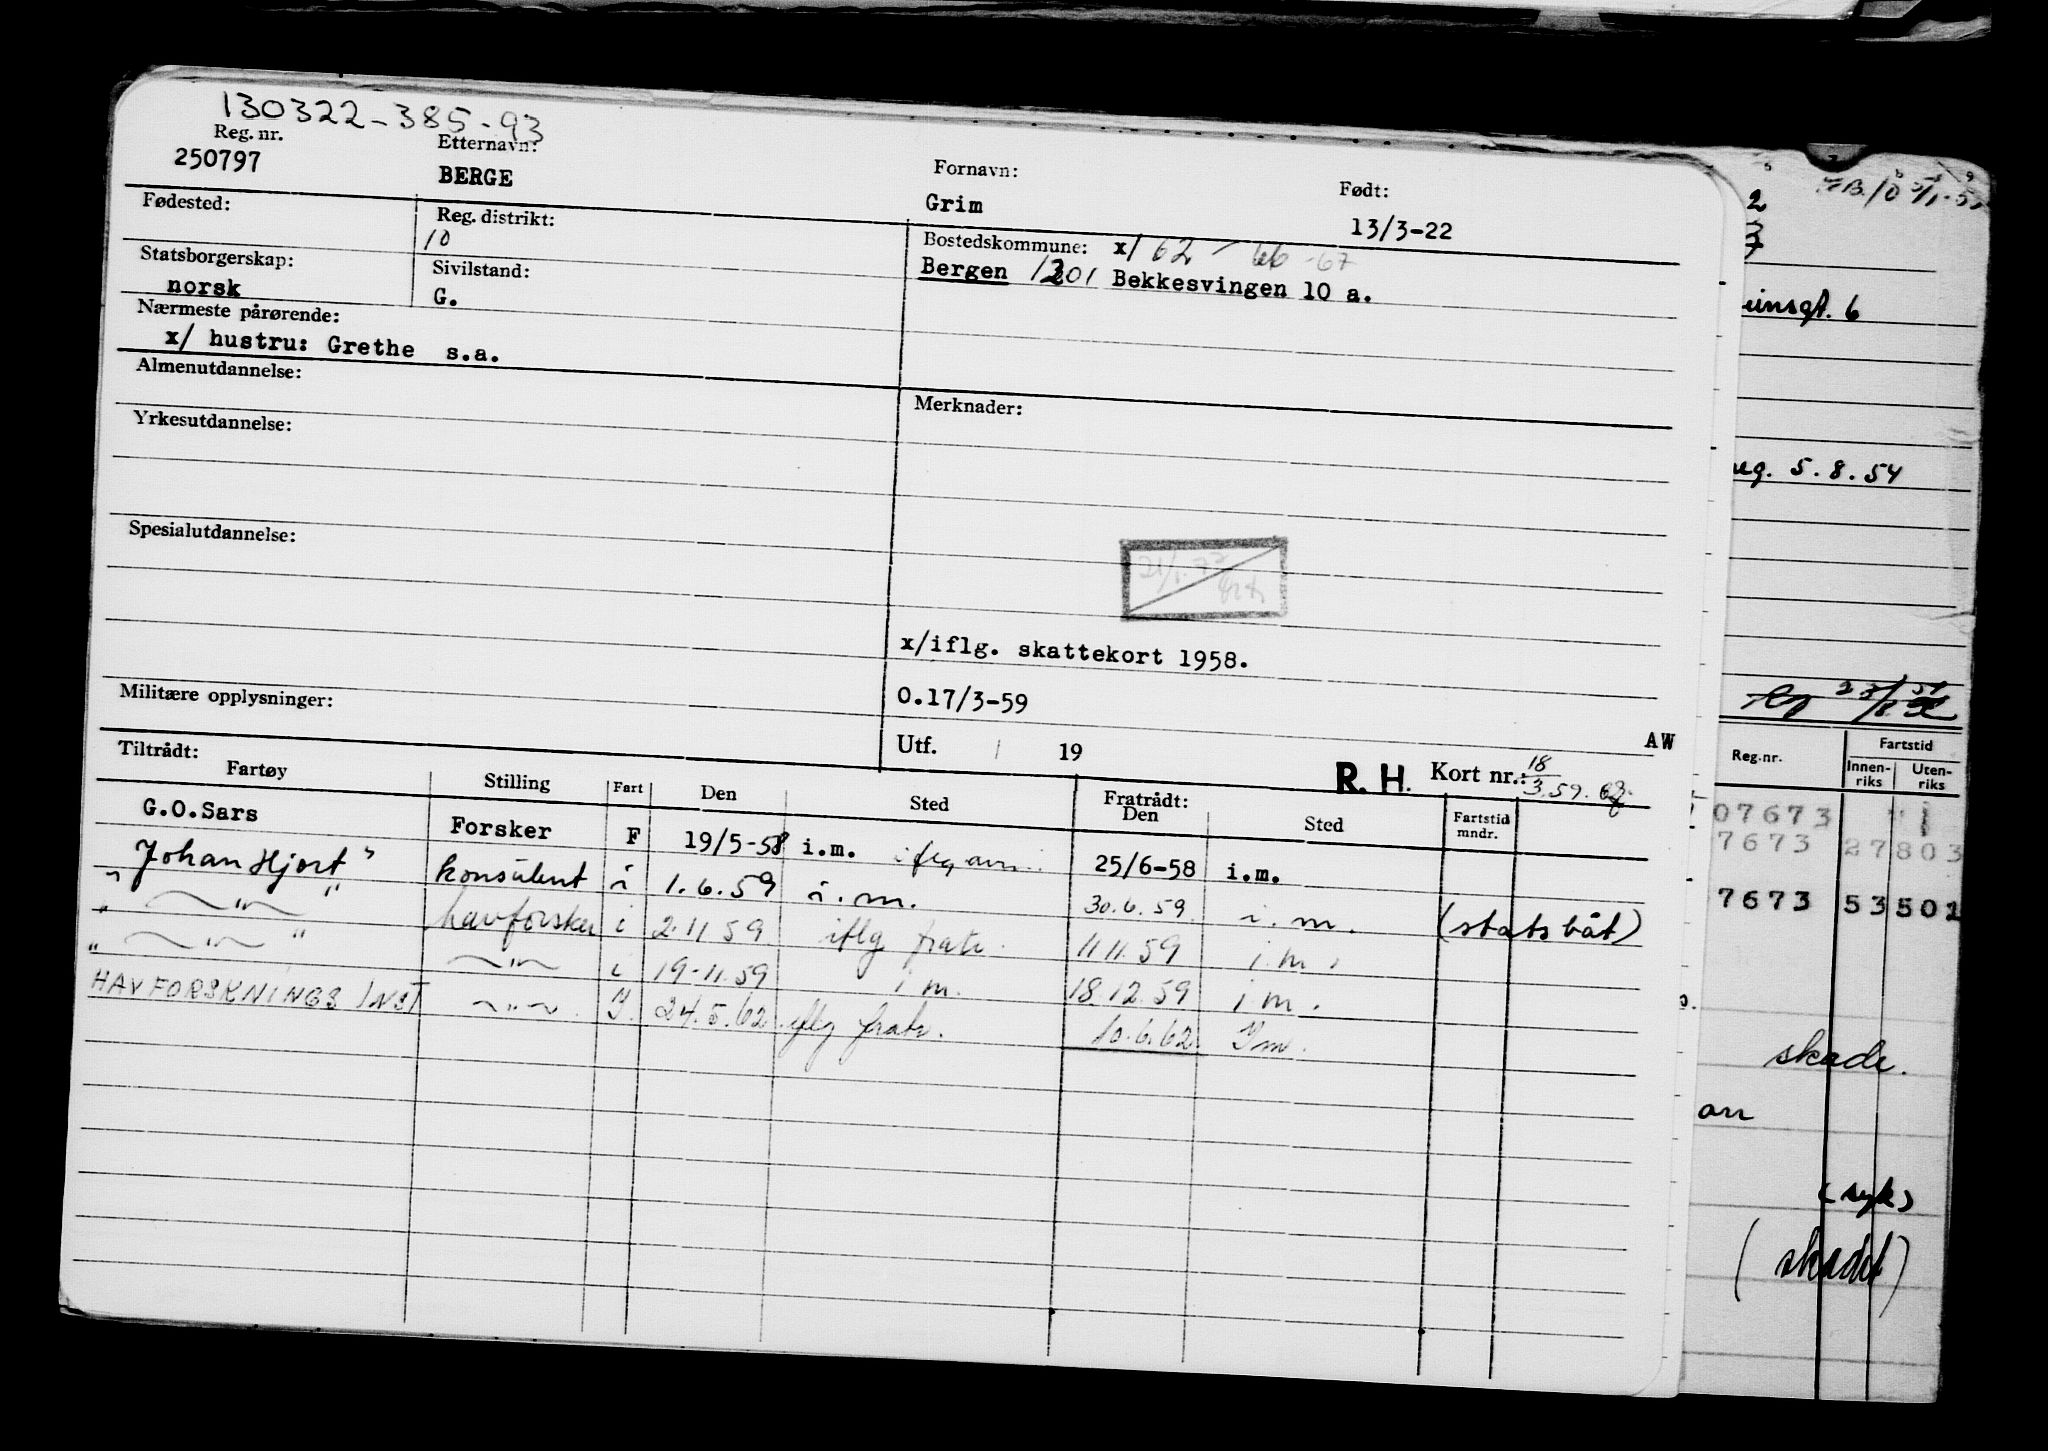 130322-385-93
Reg. nr. Etternavn: Fornavn: Født:
250797 BERGE Grim 13/3-22
Fødested: Reg. distrikt: Bostedskommune: x/ 62 66-67
10 Bergen 1201 Bekkesvingen 10 a.
Statsborgerskap: Sivilstand:
norsk G.
Nærmeste pårørende:
x/ hustru: Grethe s.a.
Almenutdannelse: Merknader:
Yrkesutdannelse:
Spesialutdannelse:
x/iflg. skattekort 1958.
Militære opplysninger: O.17/3-59
Utf. 19 AW
R. H. Kort nr.: 18/3.59.
Tiltrådt: Fratrådt:
Fartøy Stilling Fart Den Sted Den Sted Fartstid mndr.
G.O.Sars Forsker F 19/5-58 i.m. 25/6-58 i.m.
"Johan Hjort" konsulent i 1.6.59 i.m. 30.6.59 i.m. (statsbåt)
" — " — " havforsker i 2.11 59 iflg fratr. 11 11.59 i.m.
" — " — " — " — i 19-11.59 i m. 18.12.59 i m.
HAVFORSKNINGS INST — " — . Y. 24.5.62 iflg fratr. 10.6.62 Y m.
2
einsgt. 6
5.8.54
Reg.nr. Fartstid
Innen-riks Uten-riks
07673
7673 27803
7673 53501
skade.
an
(syk)
(skadet)